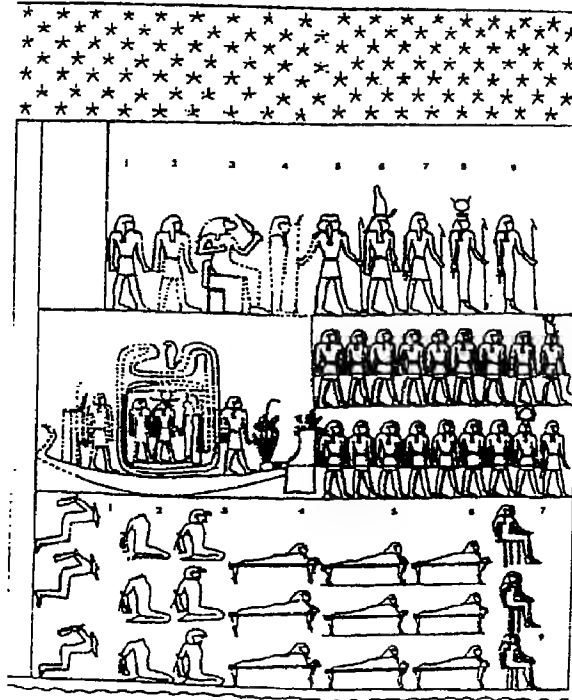 1 2 3 4 5 6 7 8 9
1 2 3 4 5 6 7